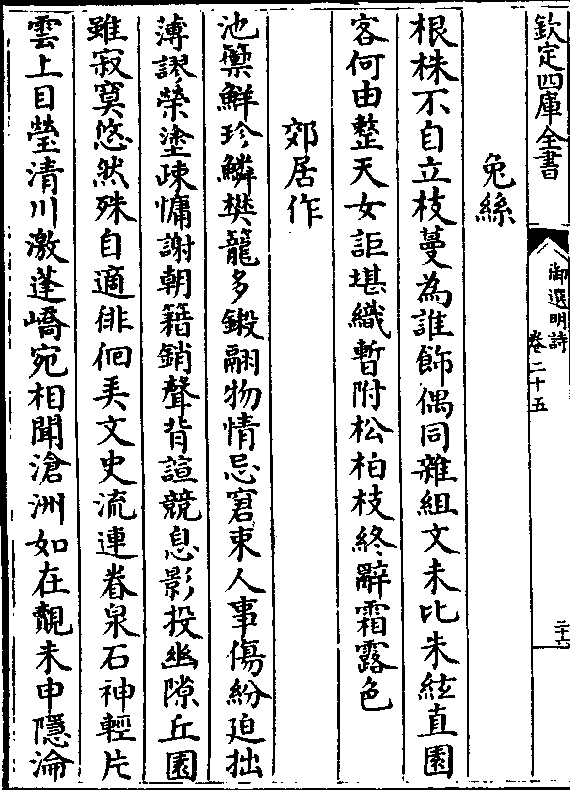 欽定四庫全書
御選明詩
卷二十五
兔絲
根株不自立枝蔓為誰飾偶同雜組文未比朱絃直園
客何由整天女詎堪織暫附松柏枝終辭霜露色
郊居作
池籞鮮珍鱗樊籠多鎩翮物情忌窘束人事傷紛迫拙
薄謬榮塗疎慵謝朝籍銷聲背諠競息影投幽隙丘園
雖寂寞悠然殊自適俳佪美文史流連眷泉石神輕片
雲上目瑩清川激蓬嶠宛相聞滄洲如在覿未申隱淪